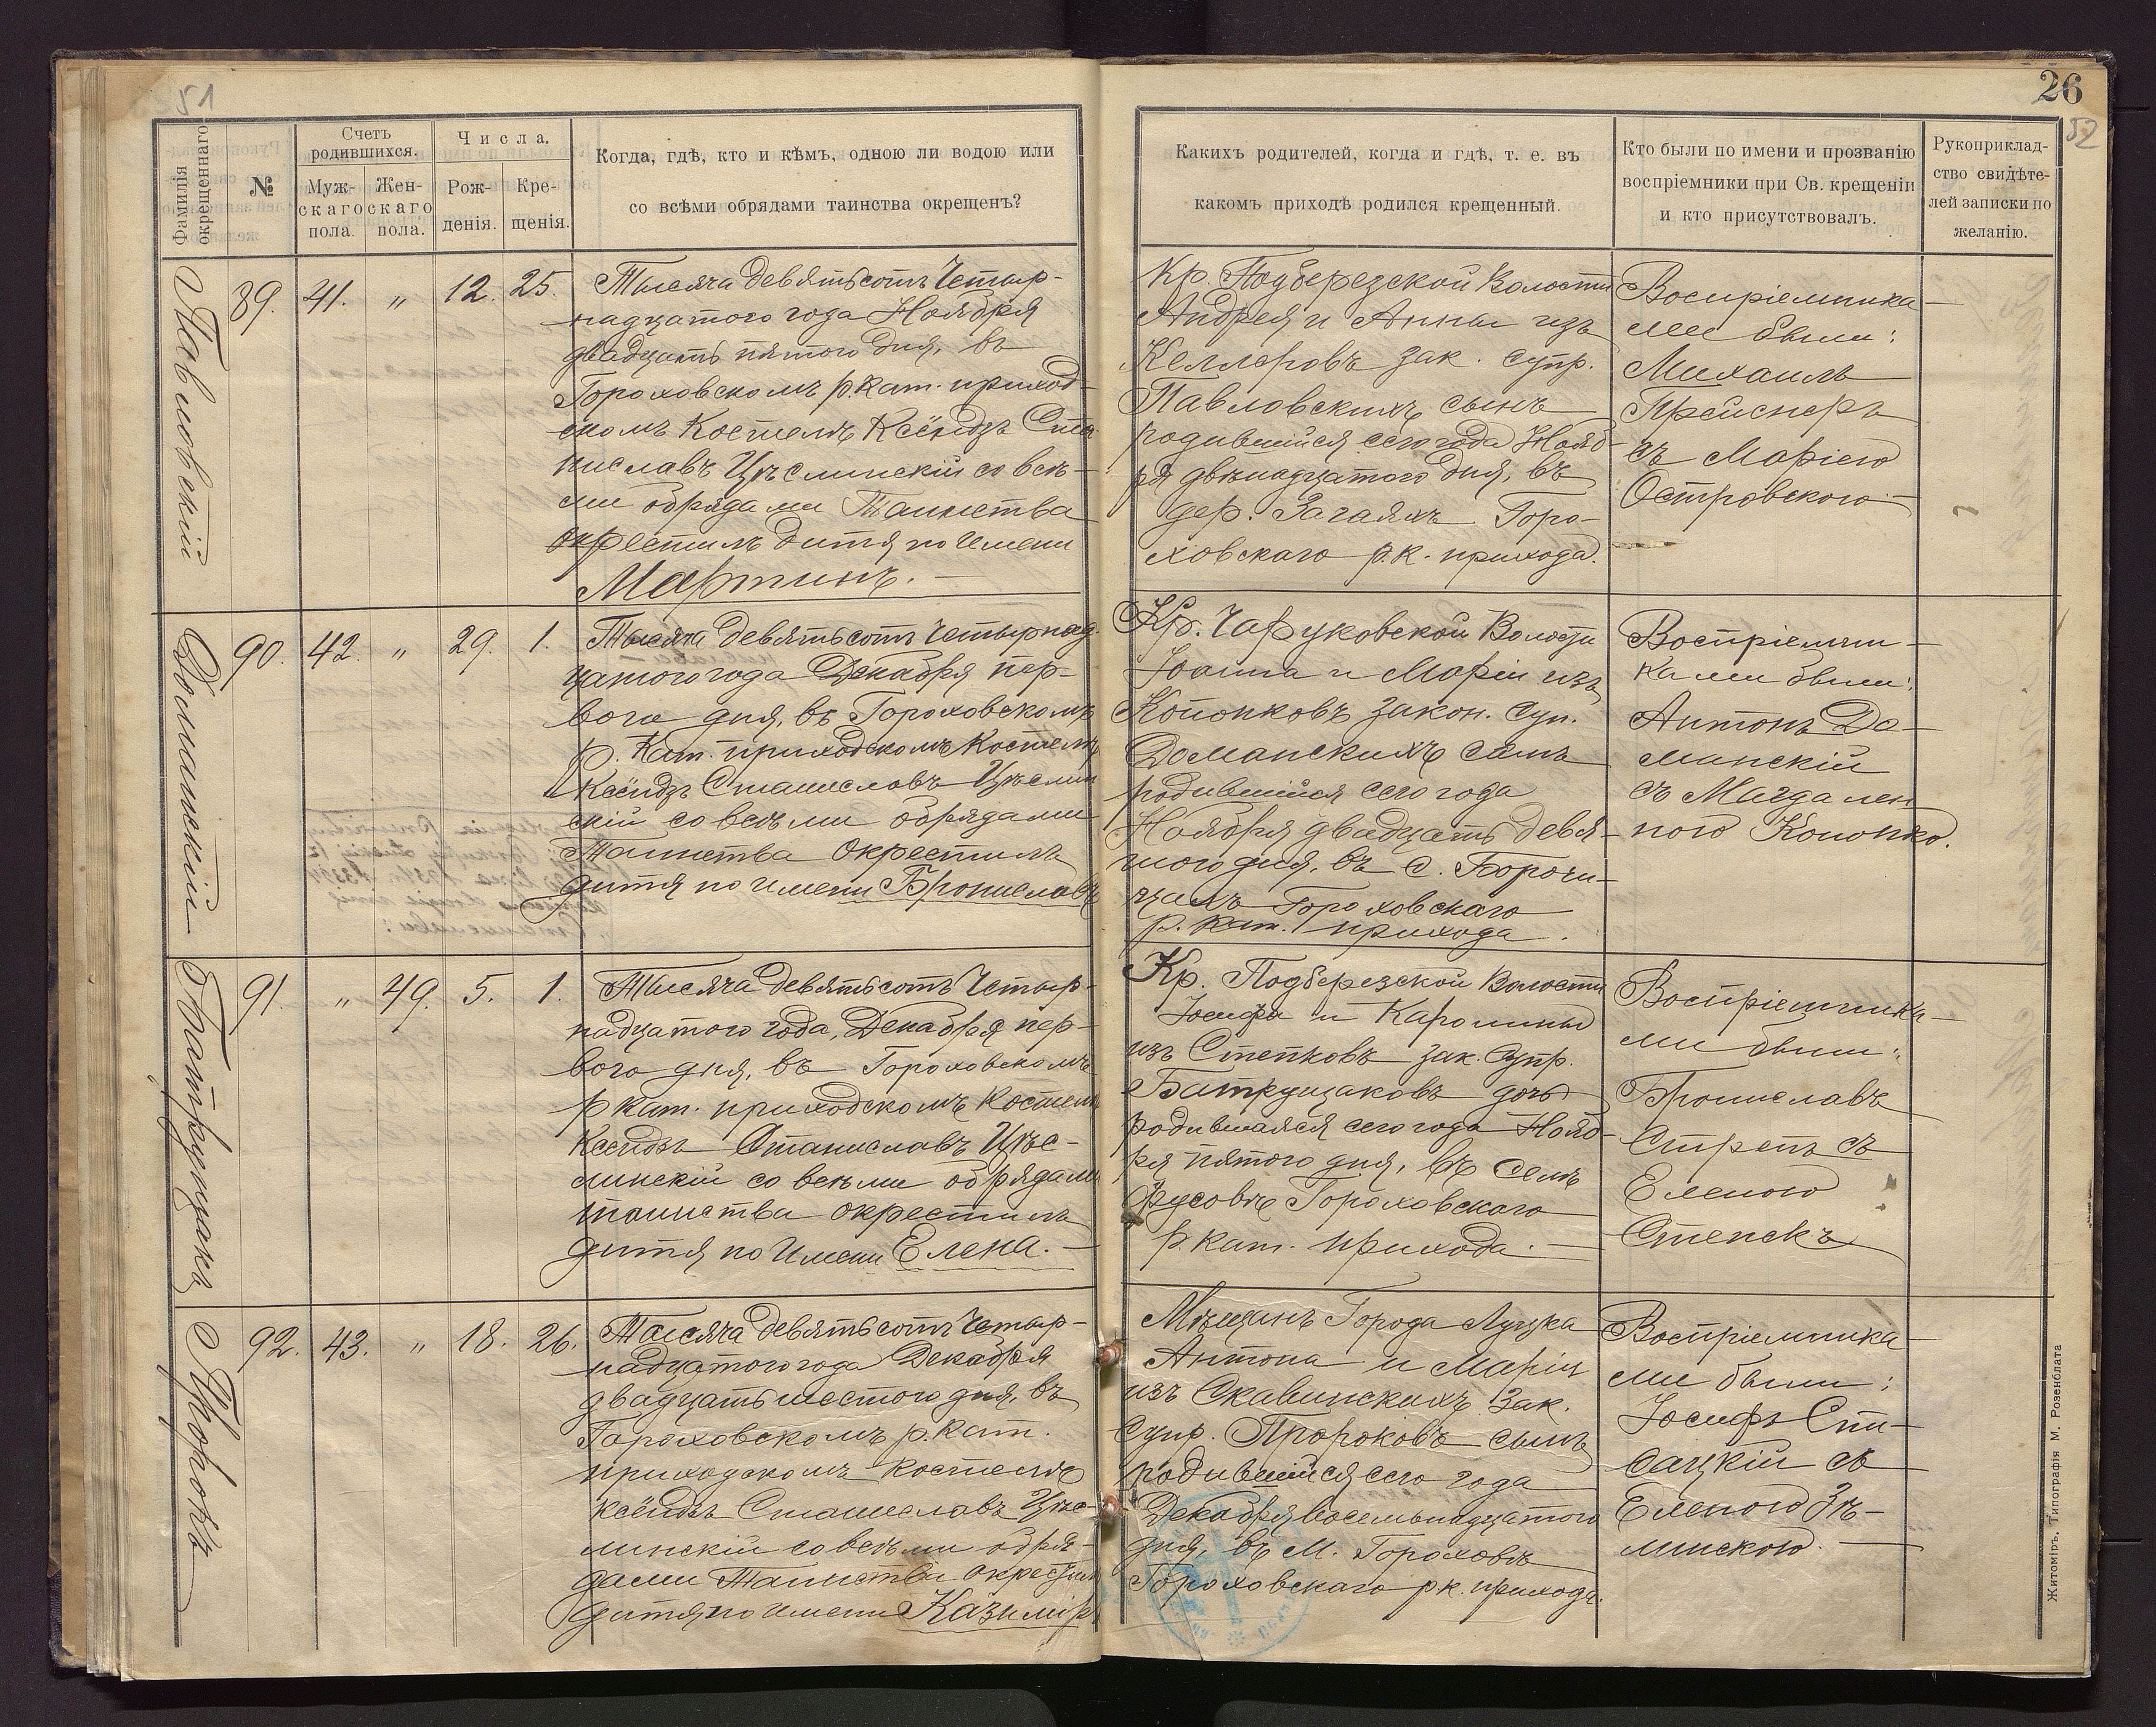 51
Фамилія окрещеннаго
№
Счетъ родившихся.
Мужскаго пола.
Женскаго пола.
Числа.
Рожденія.
Крещенія.
Когда, гдѣ, кто и кѣмъ, одною ли водою или
со всѣми обрядами таинства окрещенъ?
Павловскій
89. 41. „ 12. 25.
Тысяча девятьсотъ четыр-
надцатого года Ноября
двадцать пятого дня, въ
Гороховскомъ р.кат. приход-
скомъ костелѣ Ксёндзъ Ста
ниславъ Цѣслинскій со всѣ-
ми обрядами Таинства
окрестилъ дитя по имени
Мартинъ. —
Доманскій
90. 42. „ 29. 1.
Тысяча девятьсотъ четырнад-
цатого года Декабря пер-
вого дня, въ Гороховскомъ
р. кат. приходскомъ костелѣ
Ксёндзъ Станиславъ Цѣслин
скій со всѣми обрядами
Таинства окрестилъ
дитя по имени Брониславъ
Батруцакъ
91. „ 49. 5. 1.
Тысяча девятьсотъ четыр-
надцатого года, Декабря пер-
вого дня, въ Гороховскомъ
р кат. приходскомъ костелѣ
Ксендзъ Станиславъ Цѣс-
линскій со всѣми обрядами
таинства окрестилъ
дитя по имени Елена. —
Пророкъ
92. 43. „ 18. 26.
Тысяча девятьсотъ четыр-
надцатого года Декабря
двадцать шестого дня, въ
Гороховскомъ р.кат.
приходскомъ костелѣ
ксёндзъ Станиславъ Цѣс-
линскій со всѣми обря-
дами Таинства окрестилъ
дитя по имени Казиміръ
26
52
Какихъ родителей, когда и гдѣ, т. е. въ
какомъ приходѣ родился крещенный.
Кто были по имени и прозванію
воспріемники при Св. крещеніи
и кто присутствовалъ.
Рукоприклад-
ство свидѣте-
лей записки по
желанію.
Кр. Подберезской Волости
Андрея и Анны изъ
Келлеровъ зак. супр.
Павловскихъ сынъ
родившійся сего года Нояб-
ря двѣнадцатого дня, въ
дер. Загаяхъ Горо-
ховскаго р.к. прихода.
Воспріемника-
ми были:
Михаилъ
Прейснеръ
съ Маріею
Островскою —
Кр. Чаруковской Волости
Іоанна и Маріи изъ
Конопковъ закон. суп.
Доманскихъ сынъ
родившійся сего года
Ноября двадцать девя-
того дня, въ с. Борочи-
цахъ Гороховскаго
р. кат. прихода.
Воспріемни-
ками были:
Антонъ До-
манскій
съ Магдален
ною Конопко.
Кр. Подберезской Волости
Іосифа и Каролины
изъ Степковъ зак. супр.
Батруцаковъ дочь
родившаяся сего года Нояб-
ря пятого дня, въ селѣ
Фусовѣ Гороховскаго
р.кат. прихода. —
Воспріемника-
ми были:
Брониславъ
Стрепъ съ
Еленою
Стенекъ
Мѣщанъ Города Луцка
Антона и Маріи
изъ Скавинскихъ зак.
Супр. Пророковъ сынъ
родившійся сего года
Декабря восемьнадцатого
дня, въ М. Гороховѣ
Гороховскаго р.к. прихода.
Воспріемника-
ми были:
Іосифъ Сты-
сацкій съ
Еленою Зѣ-
линскою. —
Житоміръ. Типографія М. Розенблата